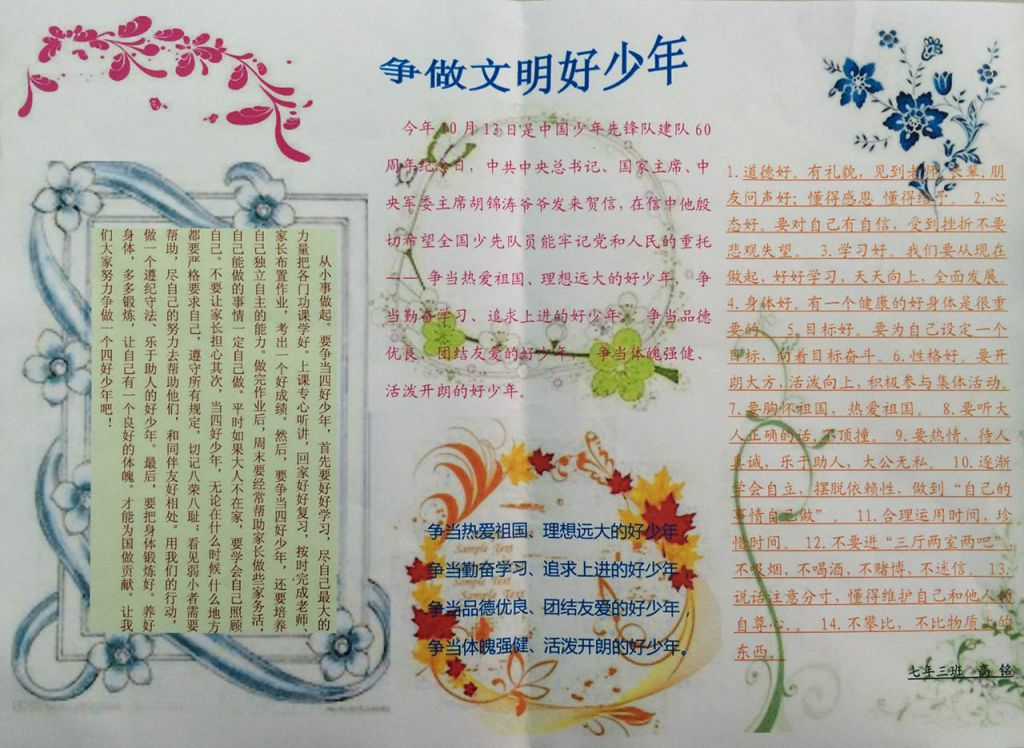 争做文明好少年
今年10月13日是中国少年先锋队建队60
周年纪念日，中共中央总书记、国家主席、中
央军委主席胡锦涛爷爷发来贺信，在信中他殷
切希望全国少先队员能牢记党和人民的重托
—— 争当热爱祖国、理想远大的好少年， 争
当勤奋学习、追求上进的好少年， 争当品德
优良、团结友爱的好少年， 争当体魄强健、
活泼开朗的好少年。
从小事做起。要争当四好少年，首先要好好学习，尽自己最大的
力量把各门功课学好。上课专心听讲，回家好好复习，按时完成老师、
家长布置作业，考出一个好成绩。然后，要争当四好少年，还要培养
自己独立自主的能力。做完作业后，周末要经常帮助家长做些家务活，
自己能做的事情一定自己做。平时如果大人不在家，要学会自己照顾
自己。不要让家长担心其次，当四好少年，无论在什么时候什么地方
都要严格要求自己，遵守所有规定，切记八荣八耻；看见弱小者需要
帮助，尽自己的努力去帮助他们，和同伴友好相处。用我们的行动，
做一个遵纪守法、乐于助人的好少年。最后，要把身体锻炼好。养好
身体，多多锻炼，让自己有一个良好的体魄。才能为国做贡献。让我
们大家努力争做一个四好少年吧！
争当热爱祖国、理想远大的好少年，
Sample Text
争当勤奋学习、追求上进的好少年，
Sample Text
争当品德优良、团结友爱的好少年，
争当体魄强健、活泼开朗的好少年。
1.道德好。有礼貌，见到老师,长辈,朋
友问声好；懂得感恩 懂得给予。 2.心
态好。要对自己有自信，受到挫折不要
悲观失望。 3.学习好。我们要从现在
做起，好好学习，天天向上，全面发展。
4.身体好。有一个健康的好身体是很重
要的。 5.目标好。要为自己设定一个
目标，向着目标奋斗。6.性格好。要开
朗大方，活泼向上，积极参与集体活动。
7.要胸怀祖国，热爱祖国。 8.要听大
人正确的话,不顶撞。 9.要热情，待人
真诚，乐于助人，大公无私。 10.逐渐
学会自立，摆脱依赖性，做到“自己的
事情自己做” 11.合理运用时间，珍
惜时间。 12.不要进“三厅两室两吧”，
不吸烟，不喝酒，不赌博，不迷信。 13.
说话注意分寸，懂得维护自己和他人的
自尊心。 14.不攀比，不比物质上的
东西。
七年三班 高 铭